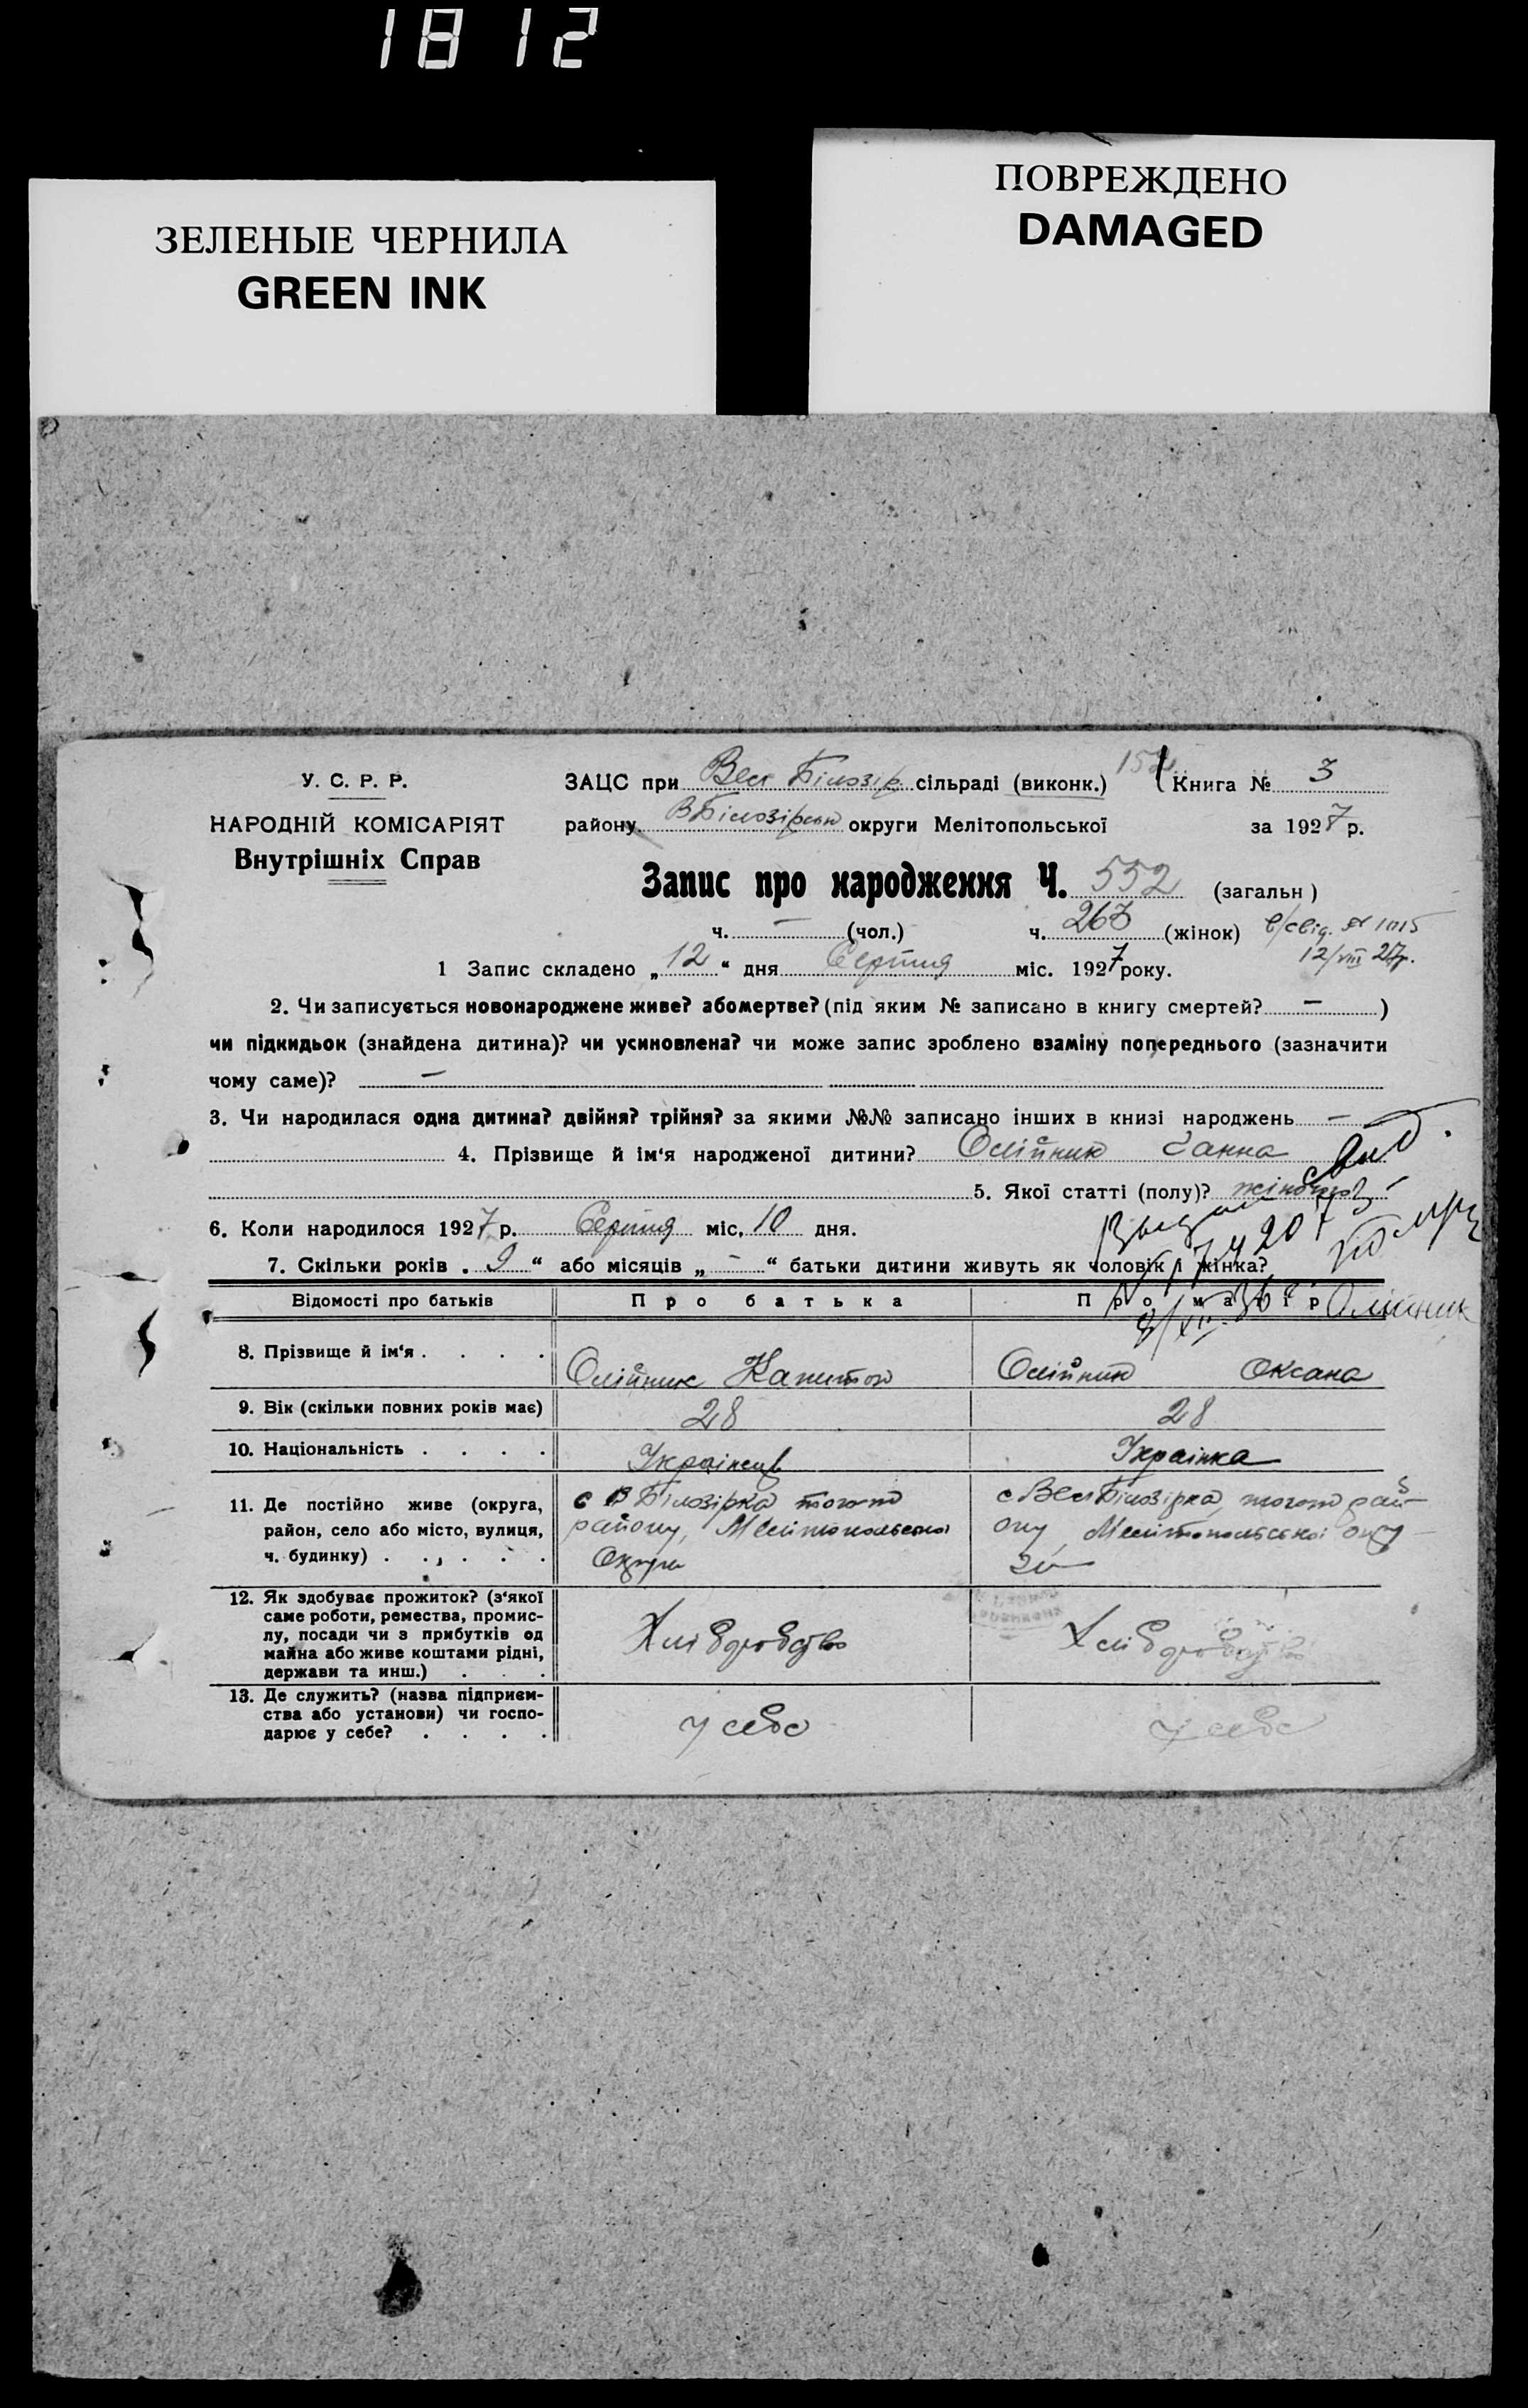 1812
ЗЕЛЕНЫЕ ЧЕРНИЛА
GREEN INK
ПОВРЕЖДЕНО
DAMAGED
У. С. Р. Р.
НАРОДНІЙ КОМІСАРІЯТ
Внутрішніх Справ
ЗАЦС при Вел Білозір. сільраді (виконк.) Книга № 3
району В Білозірськ округи Мелітопольської за 1927 р.
Запис про народження Ч. 552 (загальн)
ч. — (чол.) ч. 267 (жінок) в/свід. № 1015
12/VIII 27р.
1 Запис складено „12“ дня Серпня міс. 1927 року.
2. Чи записується новонароджене живе? або мертве? (під яким № записано в книгу смертей? — )
чи підкидьок (знайдена дитина)? чи усиновлена? чи може запис зроблено взаміну попереднього (зазначити
чому саме)? —
3. Чи народилася одна дитина? двійня? трійня? за якими №№ записано інших в книзі народжень —
4. Прізвище й ім‘я народженої дитини? Олійник Ганна
5. Якої статті (полу)? жіночої
6. Коли народилося 1927 р. Серпня міс. 10 дня.
7. Скільки років . 9 “ або місяців „ - “ батьки дитини живуть як чоловік і жінка?
Відомості про батьків Про батька Про матір
Олійник
8. Прізвище й ім‘я . . . . Олійник Капитон Олійник Оксана
9. Вік (скільки повних років має) 28 28
10. Національність . . . . Українець Українка
11. Де постійно живе (округа,
район, село або місто, вулиця,
ч. будинку) . . . . .
с В Білозірка того-ж
району, Мелітопольської
Округи
с Вел Білозірка, того-ж рай-
ону Мелітопольської окру-
ги
12. Як здобуває прожиток? (з‘якої
саме роботи, ремества, промис-
лу, посади чи з прибутків од
майна або живе коштами рідні,
держави та инш.) . . .
Хліборобство Хліборобство
13. Де служить? (назва підприєм-
ства або установи) чи госпо-
дарює у себе? . . . .
у себе у себе